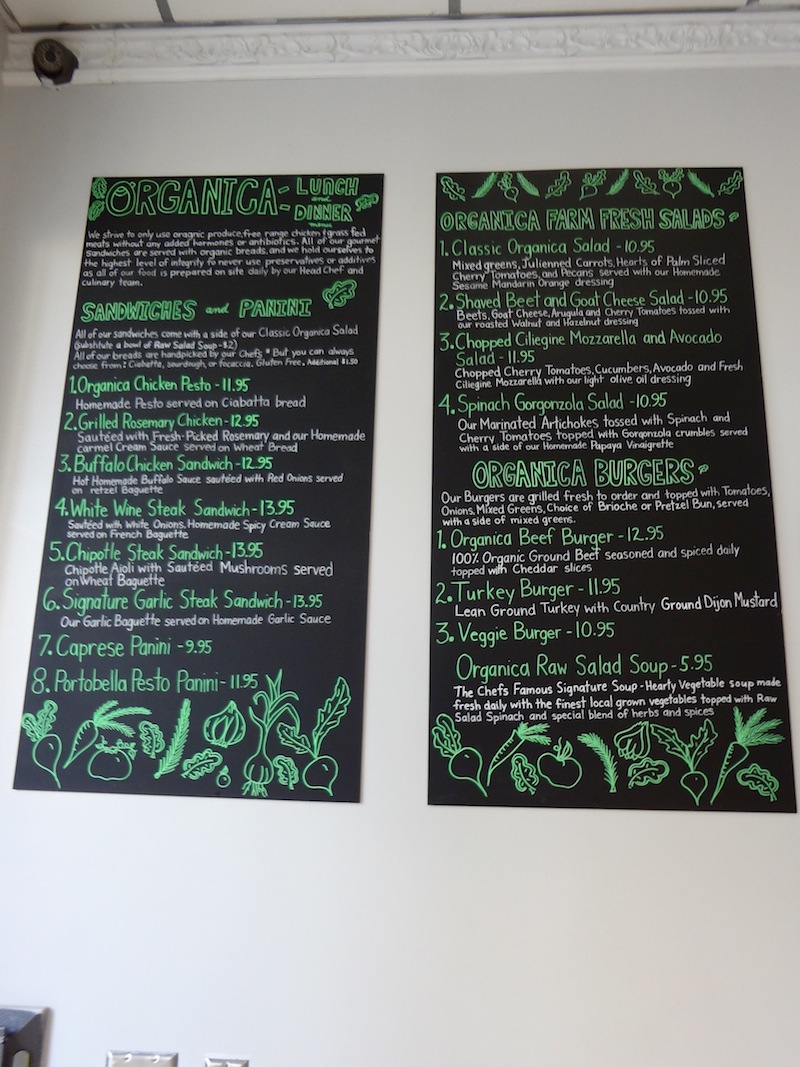 ORGANICA- LUNCH
and
DINNER
menu
We strive to only use oraganic produce, free range chicken & grass fed
meats without any added hormones or antibiotics. All of our gourmet
Sandwiches are served with organic breads, and we hold ourselves to
the highest level of integrity to never use preservatives or additives
as all of our food is prepared on site daily by our Head Chef and
culinary team.
SANDWICHES and PANINI
All of our sandwiches come with a side of our Classic Organica Salad
(Substitute a bowl of Raw Salad Soup -$2)
All of our breads are handpicked by our Chefs * But you can always
choose from: Ciabatta, sourdough, or focaccia. Gluten Free, Additional $1.50
1. Organica Chicken Pesto - 11.95
Homemade Pesto served on Ciabatta bread
2. Grilled Rosemary Chicken - 12.95
Sautéed with Fresh-Picked Rosemary and our Homemade
carmel Cream Sauce served on Wheat Bread
3. Buffalo Chicken Sandwich - 12.95
Hot Homemade Buffalo Sauce sautéed with Red Onions served
on retzel Baguette
4. White Wine Steak Sandwich - 13.95
Sautéed with White Onions, Homemade Spicy Cream Sauce
served on French Baguette
5. Chipotle Steak Sandwich - 13.95
Chipotle Aioli with Sautéed Mushrooms served
on Wheat Baguette
6. Signature Garlic Steak Sandwich - 13.95
Our Garlic Baguette served on Homemade Garlic Sauce
7. Caprese Panini - 9.95
8. Portobella Pesto Panini - 11.95
ORGANICA FARM FRESH SALADS
1. Classic Organica Salad - 10.95
Mixed greens, Julienned Carrots, Hearts of Palm Sliced
Cherry Tomatoes, and Pecans served with our Homemade
Sesame Mandarin Orange dressing
2. Shaved Beet and Goat Cheese Salad - 10.95
Beets, Goat Cheese, Arugula and Cherry Tomatoes tossed with
our roasted Walnut and Hazelnut dressing
3. Chopped Ciliegine Mozzarella and Avocado
Salad - 11.95
Chopped Cherry Tomatoes, Cucumbers, Avocado and Fresh
Ciliegine Mozzarella with our light olive oil dressing
4. Spinach Gorgonzola Salad - 10.95
Our Marinated Artichokes tossed with Spinach and
Cherry Tomatoes topped with Gorgonzola crumbles served
with a side of our Homemade Papaya Vinaigrette
ORGANICA BURGERS
Our Burgers are grilled fresh to order and topped with Tomatoes,
Onions, Mixed Greens, Choice of Brioche or Pretzel Bun, served
with a side of mixed greens.
1. Organica Beef Burger - 12.95
100% Organic Ground Beef seasoned and spiced daily
topped with Cheddar slices
2. Turkey Burger - 11.95
Lean Ground Turkey with Country Ground Dijon Mustard
3. Veggie Burger - 10.95
Organica Raw Salad Soup - 5.95
The Chefs Famous Signature Soup - Hearty Vegetable soup made
fresh daily with the finest local grown vegetables topped with Raw
Salad Spinach and special blend of herbs and spices